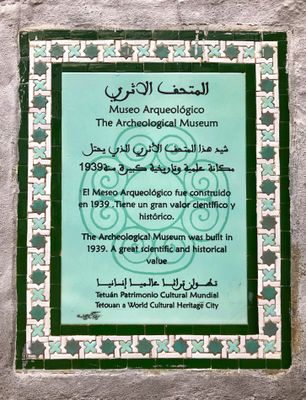 المتحف الاثري
Museo Arqueológico
The Archeological Museum
شيد هذا المتحف الاثري الذي يحتل
مكانة علمية وتاريخية كبيرة سنة 1939
El Meseo Arqueológico fue construido
en 1939 .Tiene un gran valor científico y
histórico.
The Archeological Museum was built in
1939. A great scientific and historical
value
تطوان تراثا عالميا إنسانيا
Tetuán Patrimonio Cultural Mundial
Tetouan a World Cultural Heritage City